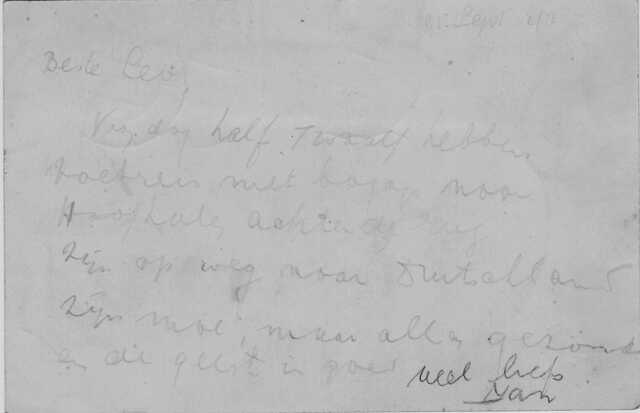 Beste Leo,
Vrijdag half Twaalf hebben
voetreis met bagage naar
achter de rug
zijn op weg naar Duitschland
zijn moe, maar allen gezond
en de geest is goed veel liefs